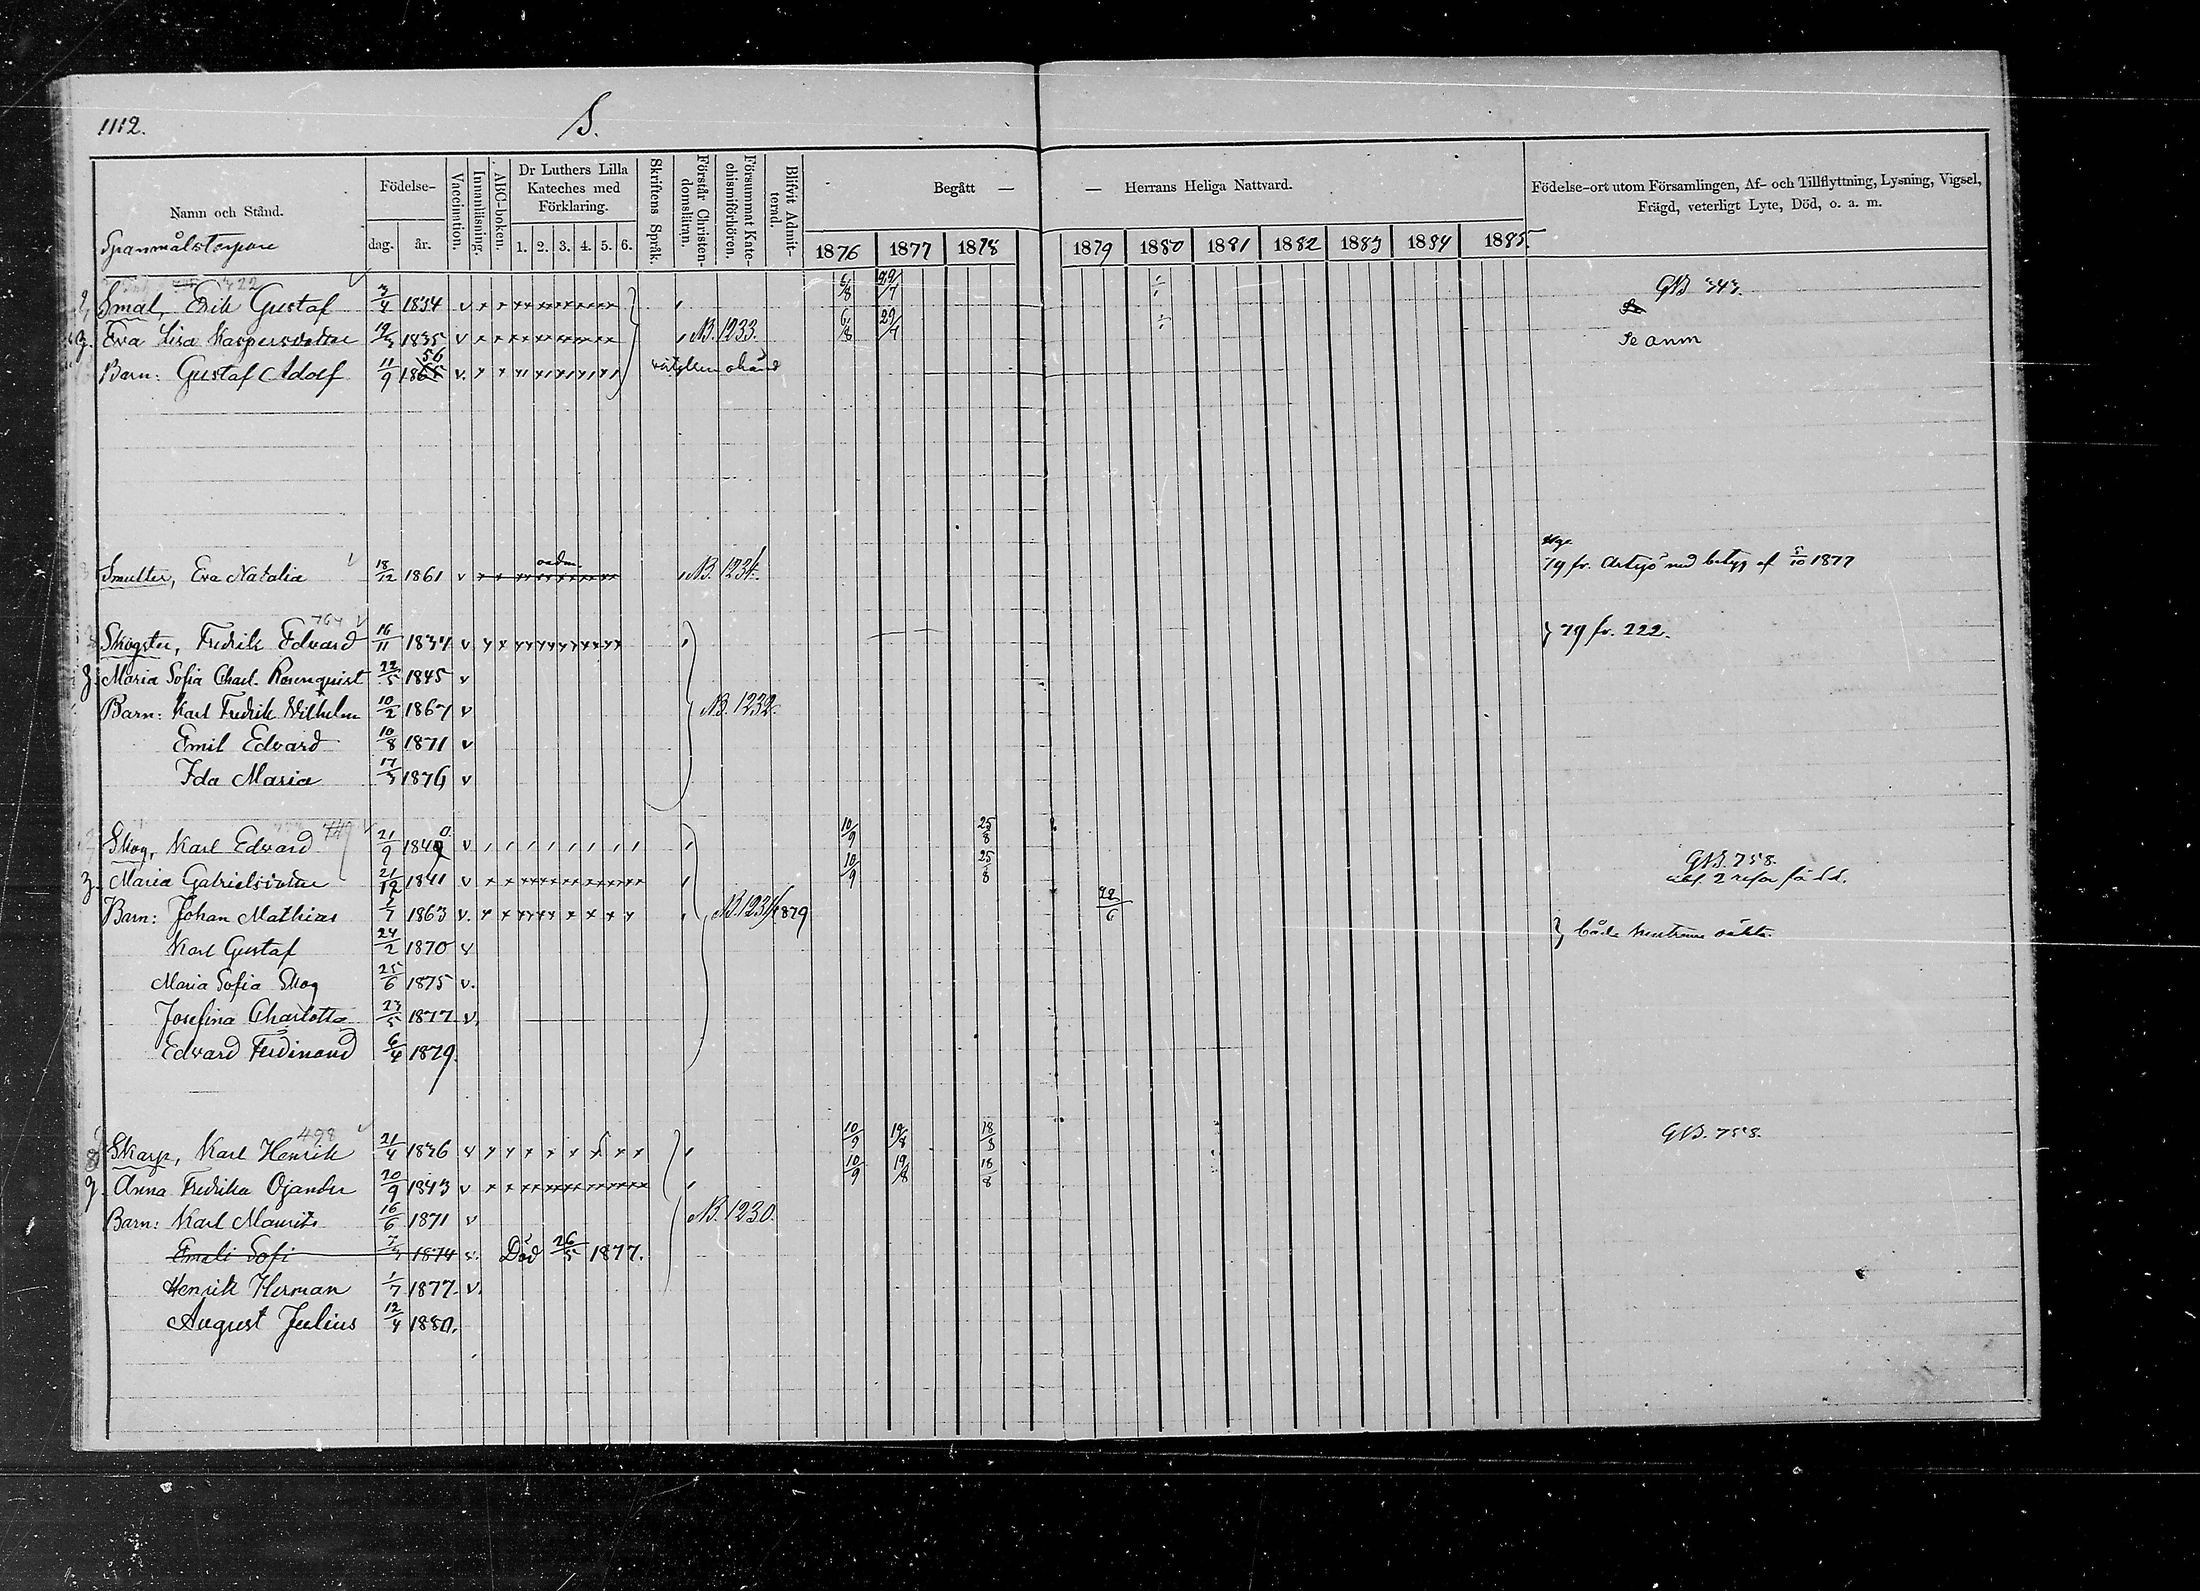 1112. S.
Namn och Stånd. Födelse- dag. år. Vaccination. Innanläsning. ABC-boken. Dr Luthers Lilla Kateches med Förklaring. 1. 2. 3. 4. 5. 6. Skriftens Språk. Förstår Christendomsläran. Försummat Katechismiförhören. Blifvit Admitterad. Begått — — Herrans Heliga Nattvard. Födelse-ort utom Församlingen, Af- och Tillflyttning, Lysning, Vigsel, Frägd, veterligt Lyte, Död, o. a. m.
1876 1877 1878 1879 1880 1881 1882 1883 1884 1885.
Smal, Erik Gustaf 3/4 1834 v 6/8 29/7 GB 343.
Eva Lisa Kaspersdotter 1835 v NB. 1233. 6/8 29/7 Se anm
Barn: Gustaf Adolf 11/9 1865 56 v.
Smulter, Eva Natalia 18/12 1861 v NB. 1234. 79 fr. med betyg af 5/10 1877
764
Skogster, Fredrik Edvard 16/11 1837 v } 79 fr. 222.
Maria Sofia Charl. Rosenquist 22/5 1845 v
Barn: Karl Fredrik Vilhelm 10/2 1867 v NB. 1232.
Emil Edvard 10/8 1871 v
Ida Maria 17/3 1876 v
Skog, Karl Edvard 749 21/9 1840 v 10/9 25/8
Maria Gabrielsdotter 21/12 1841 v 10/9 25/8 GB. 758.
Barn: Johan Mathias 1/7 1863 v. NB. 1231/1879 28/6
Karl Gustaf 24/2 1870 v
Maria Sofia Skog 25/6 1875 v.
Josefina Charlotta 23/5 1877 v.
Edvard Ferdinand 6/4 1879.
498
Skarp, Karl Henrik 21/4 1836 v 10/9 19/8 18/8 GB. 758.
Anna Fredrika Öjander 20/9 1843 v 10/9 19/8 18/8
Barn: Karl Maurits 16/6 1871 v NB. 1230.
Emeli Sofi 7/3 1874 v. Död 26/5 1877.
Henrik Herman 1/7 1877. v.
August Julius 12/4 1880.